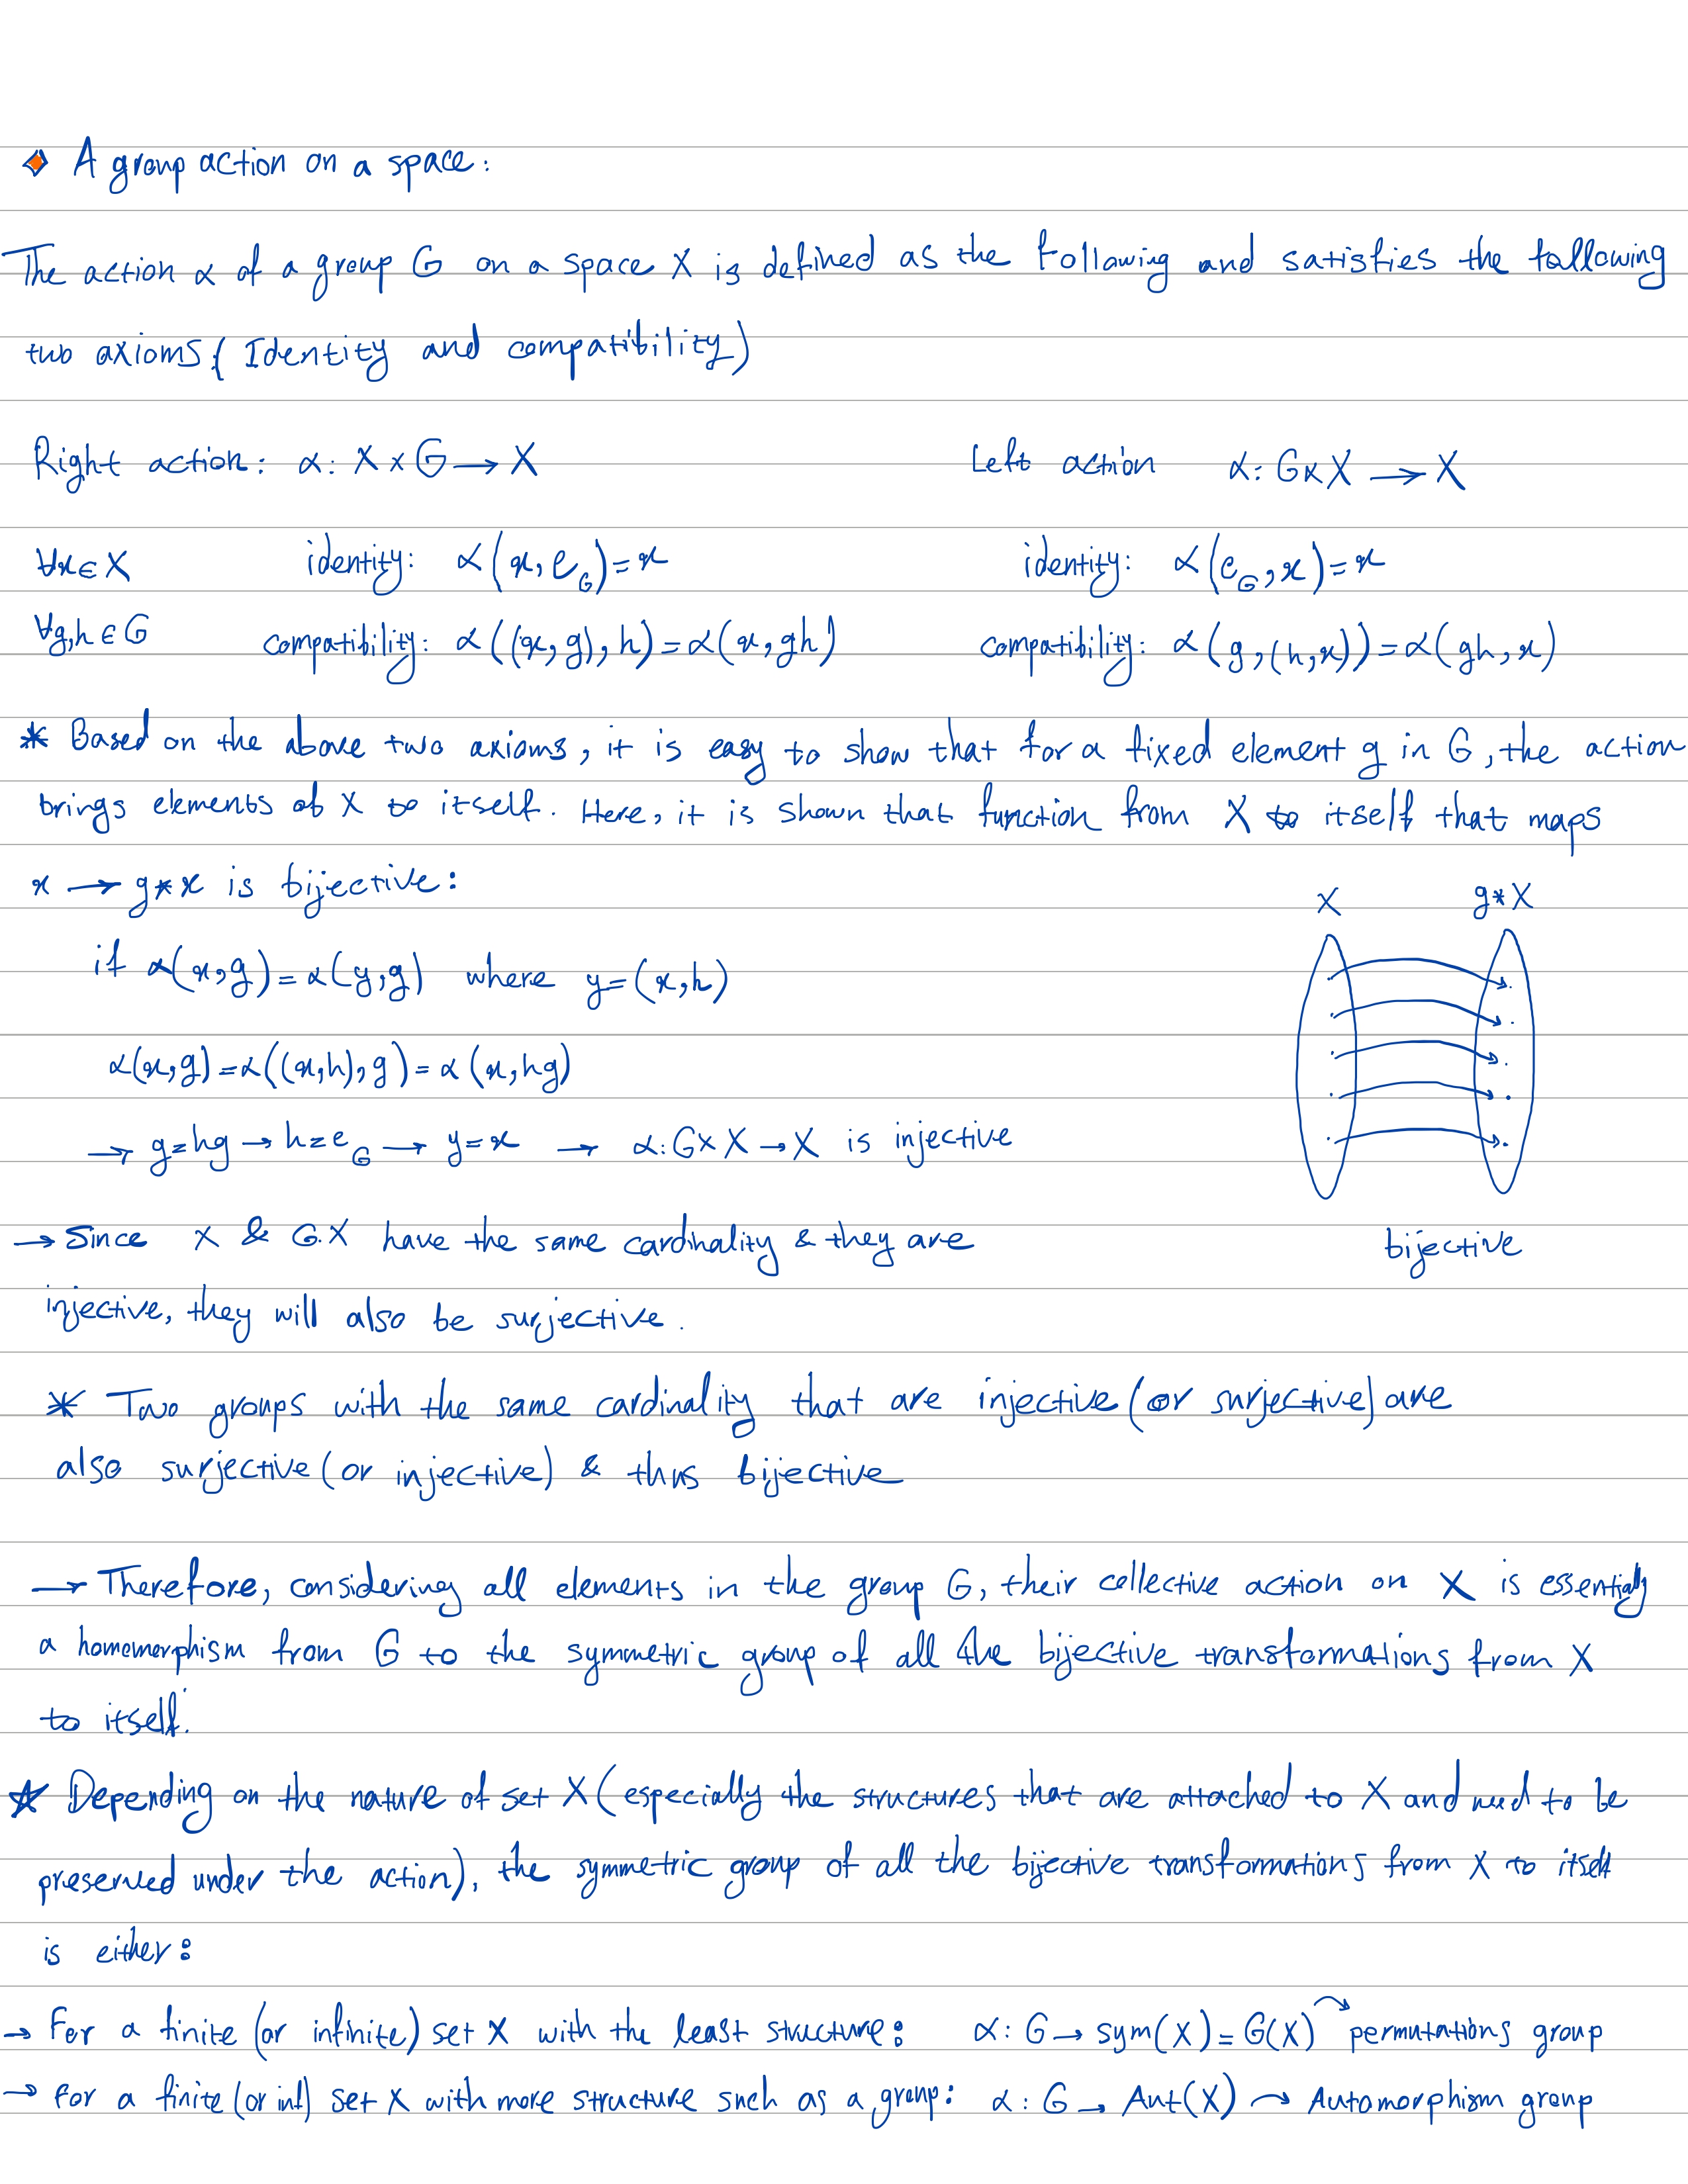 A group action on a space:
The action α of a group G on a space X is defined as the following and satisfies the following
two axioms (Identity and compatibility)
Right action: α: X × G → X
Left action α: G × X → X
∀x∈X identity: α(x, e_G) = x
identity: α(e_G, x) = x
∀g,h∈G compatibility: α((x, g), h) = α(x, gh)
compatibility: α(g, (h, x)) = α(gh, x)
* Based on the above two axioms, it is easy to show that for a fixed element g in G, the action
brings elements of X to itself. Here, it is shown that function from X to itself that maps
x → g*x is bijective:
X g*X
if α(x,g) = α(y,g) where y=(x,h)
α(x,g) = α((x,h),g) = α(x,hg)
→ g=hg → h=e_G → y=x → α: G×X → X is injective
→ Since X & G.X have the same cardinality & they are
bijective
injective, they will also be surjective.
* Two groups with the same cardinality that are injective (or surjective) are
also surjective (or injective) & thus bijective
→ Therefore, considering all elements in the group G, their collective action on X is essentially
a homomorphism from G to the symmetric group of all the bijective transformations from X
to itself.
* Depending on the nature of set X (especially the structures that are attached to X and need to be
preserved under the action), the symmetric group of all the bijective transformations from X to itself
is either:
→ For a finite (or infinite) set X with the least structure: α: G → sym(X) = G(X) permutations group
→ For a finite (or inf) set X with more structure such as a group: α: G → Aut(X) → Automorphism group